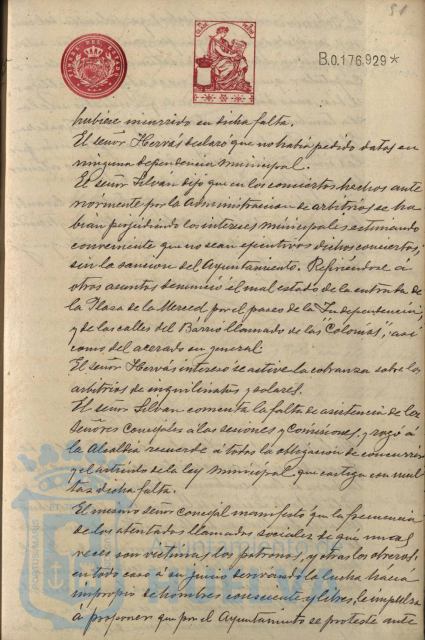 91
B.0.176.929*
hubiese incurrido en dicha falta.
El señor Hervás declaró que no había pedido datos en
ninguna dependencia municipal.
El señor Silván dijo que en los conciertos hechos ante
riormente por la Administración de arbitrios se ha
bían perjudicado los intereses municipales estimando
conveniente que no sean ejecutivos dichos conciertos,
sin la sanción del Ayuntamiento. Refiriéndose a
otros asuntos denunció el mal estado de la entrada de
la Plaza de la Merced por el paseo de la Independencia,
y de las calles del Barrio llamado de las "Colonias", así
como del acerado en general
El señor Hervás interesó se active la cobranza sobre los
arbitrios de inquilinatos y solares.
El señor Silván comenta la falta de asistencia de los
señores Concejales a las sesiones y comisiones, y rogó á
la Alcaldía recuerde a todos la obligación de concurrir
y el artículo de la ley Municipal que castiga con mul
tas dicha falta.
El mismo señor concejal manifestó que la frecuencia
de los atentados llamados sociales de que unas
veces son víctimas los patronos, y otras los obreros,
en todo caso á su juicio desviando la lucha hácia
impropio de hombres consciente y libres, le impulsa
á proponer que por el Ayuntamiento se proteste ante